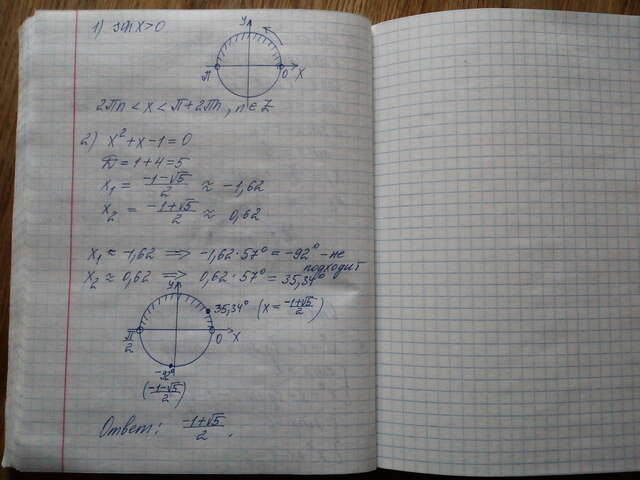 1) sin x > 0
y
π
0
x
2πn < x < π + 2πn, n ∈ Z
2) x² + x - 1 = 0
D = 1 + 4 = 5
x₁ = (-1-√5)/2 ≈ -1,62
x₂ = (-1+√5)/2 ≈ 0,62
x₁ ≈ -1,62 ⟹ -1,62·57° = -92° - не
подходит
x₂ ≈ 0,62 ⟹ 0,62·57° = 35,34°
y
35,34° (x = (-1+√5)/2)
π/2
0
x
-92°
((-1-√5)/2)
Ответ: (-1+√5)/2.